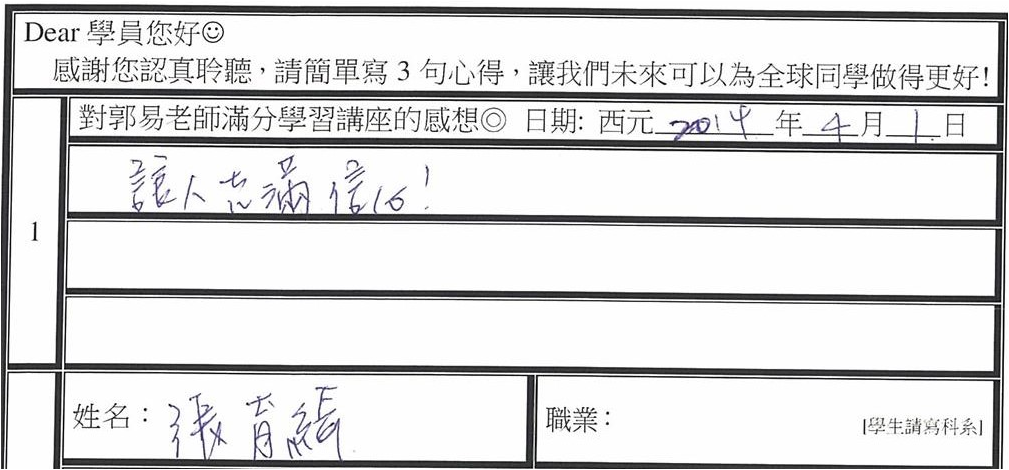 Dear 學員您好☺
感謝您認真聆聽，請簡單寫 3 句心得，讓我們未來可以為全球同學做得更好!
對郭易老師滿分學習講座的感想◎ 日期: 西元 2014 年 4 月 1 日
1
讓人充滿信心!
姓名： 張育綺
職業： [學生請寫科系]